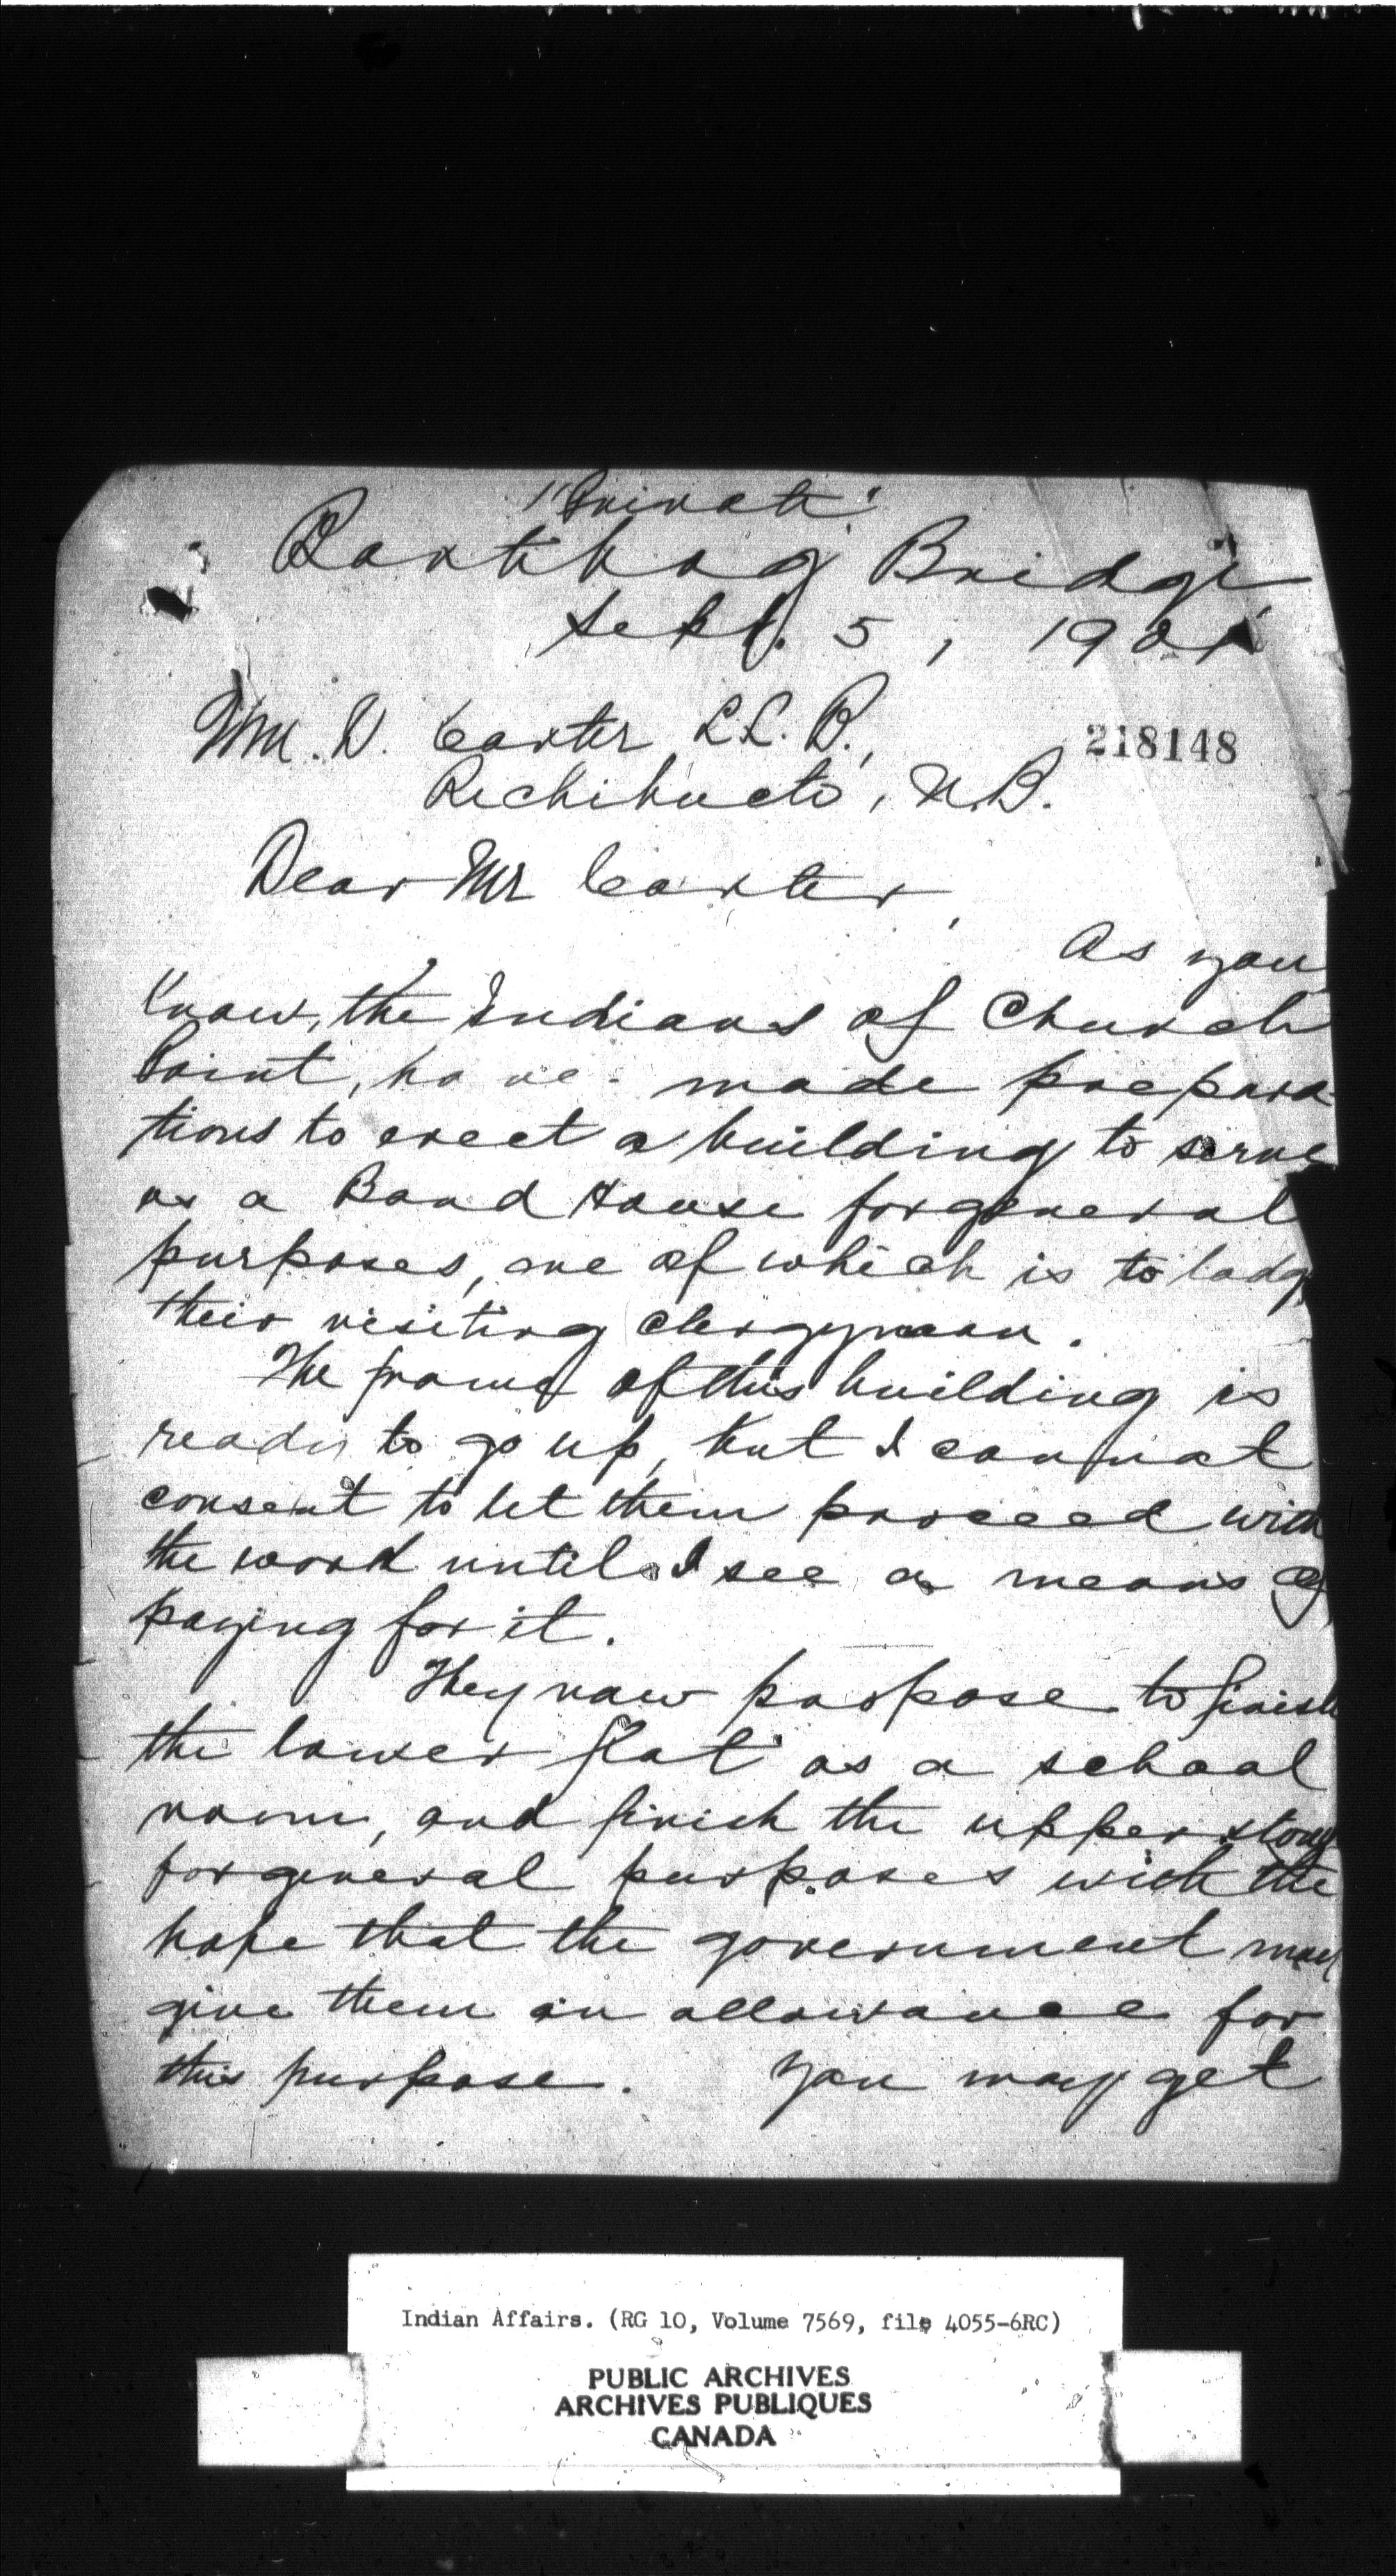 "Private"
Bartibog Bridge
Sept. 5, 1901
Wm. D. Carter LL.B.,
218148
Richibucto, N.B.
Dear Mr Carter,
As you
know, the Indians of Church
Point, have made prepara-
tions to erect a building to serve
as a Band House for general
purposes, one of which is to lodge
their visiting clergyman.
The frame of this building is
ready to go up, but I cannot
consent to let them proceed with
the work until I see a means of
paying for it.
They now propose to finish
the lower flat as a school
room, and finish the upper story
for general purposes with the
hope that the government may
give them an allowance for
this purpose. You may get
Indian Affairs. (RG 10, Volume 7569, file 4055-6RC)
PUBLIC ARCHIVES
ARCHIVES PUBLIQUES
CANADA